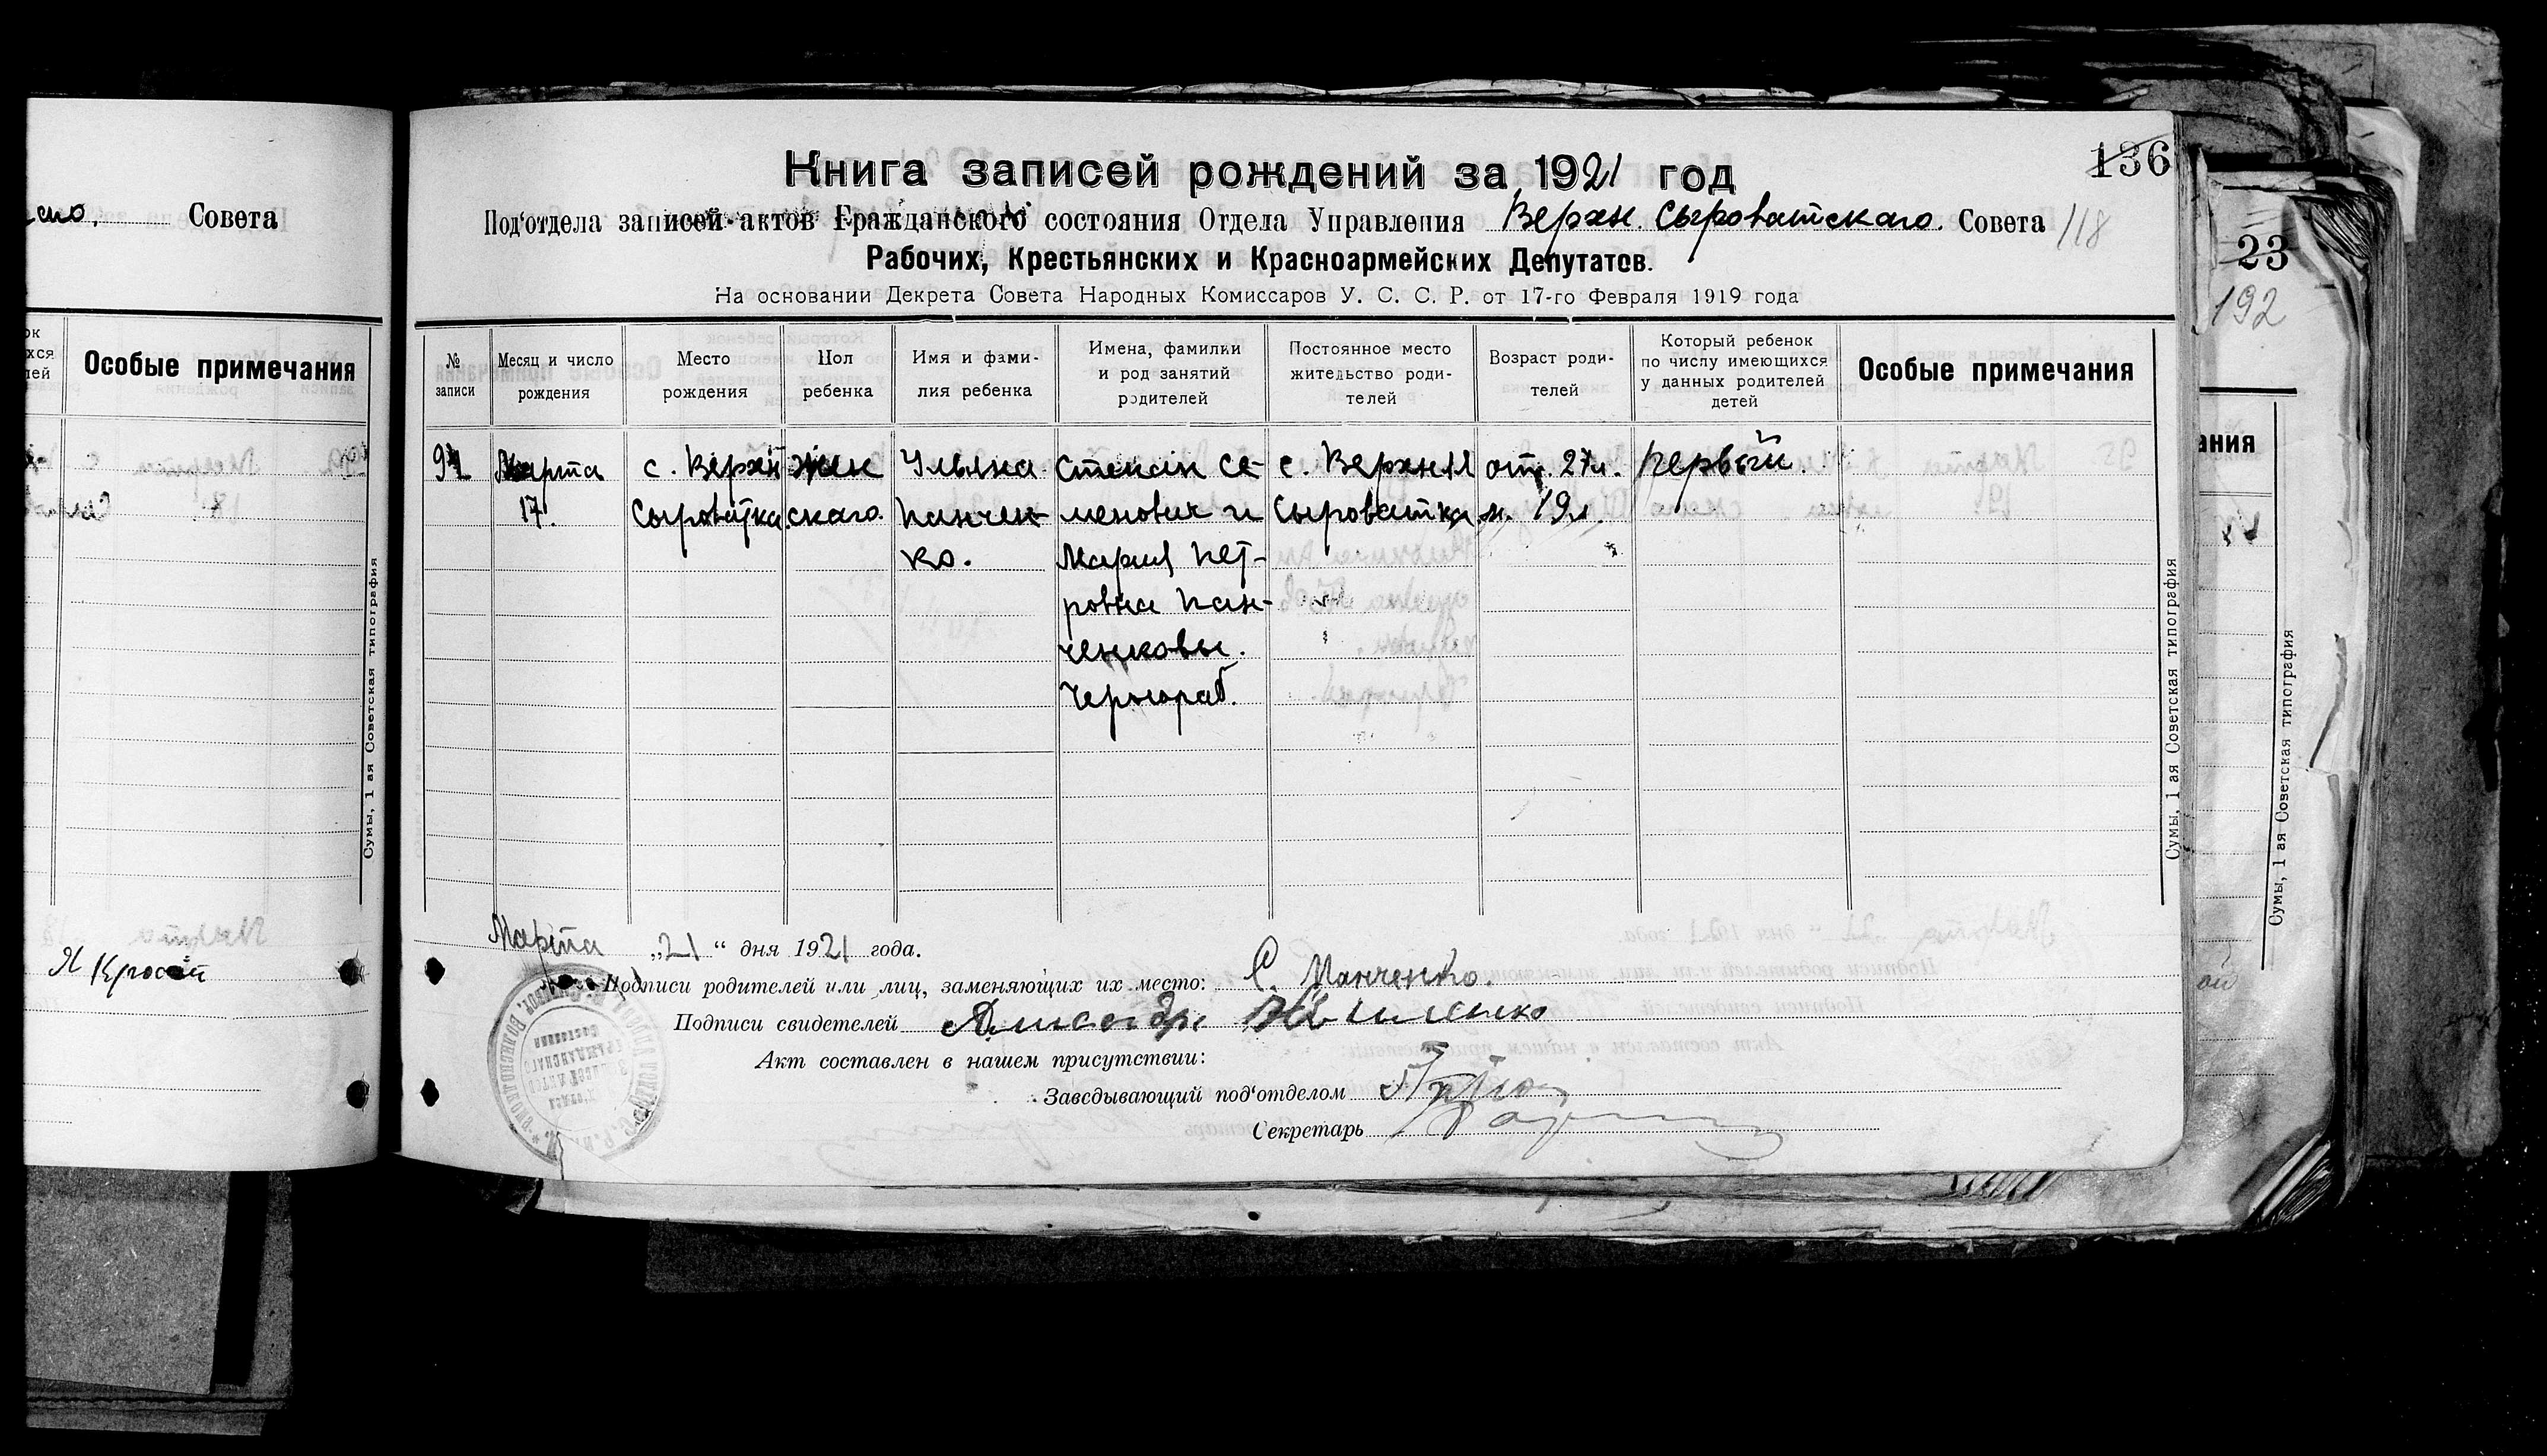 Совета
Особые примечания
Сумы, 1 ая Советская типография
Книга записей рождений за 1921 год
136
Под‘отдела записей актов Гражданского состояния Отдела Управления Верхн. Сыроватскаго. Совета 118
Рабочих, Крестьянских и Красноармейских Депутатов.
На основании Декрета Совета Народных Комиссаров У. С. С. Р. от 17-го Февраля 1919 года
№ записи
Месяц и число рождения
Место рождения
Пол ребенка
Имя и фами-
лия ребенка
Имена, фамилии
и род занятий
родителей
Постоянное место
жительство роди-
телей
Возраст роди-
телей
Который ребенок
по числу имеющихся
у данных родителей
детей
Особые примечания
Марта
17.
с. Верхн
Сыроватка
жен
скаго.
Ульяна
Панчен-
ко.
Степан Се-
менович и
Мария Пет-
ровна Пан-
ченковы.
Чернораб.
с. Верхняя
Сыроватка
отц. 27л.
м. 19л.
первый.
Сумы, 1 ая Советская типография
Марта „21“ дня 1921 года.
Подписи родителей или лиц, заменяющих их место: С. Панченко.
Подписи свидетелей
Акт составлен в нашем присутствии:
Заведывающий под‘отделом
Секретарь
23
192
ания
Сумы, 1 ая Советская типография